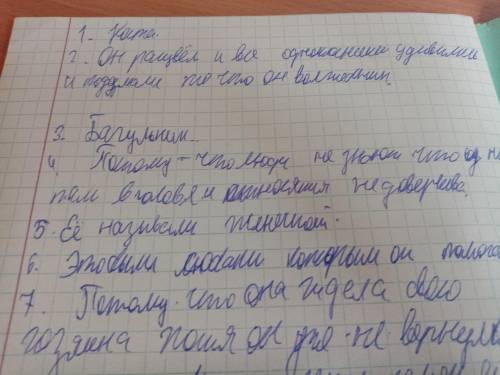 1. Коста.
2. Он ращвёл и все однокласники удивились
и подумали что он волшебник.
3. Багульник.
4. Потому-что люди не знают что
там в голове и относятся недоверчива.
5. Её называли женичкой.
6. Это были люди которым он помога
7. Потому-что она ждела свого
гозяина хотя он уже не вернулся